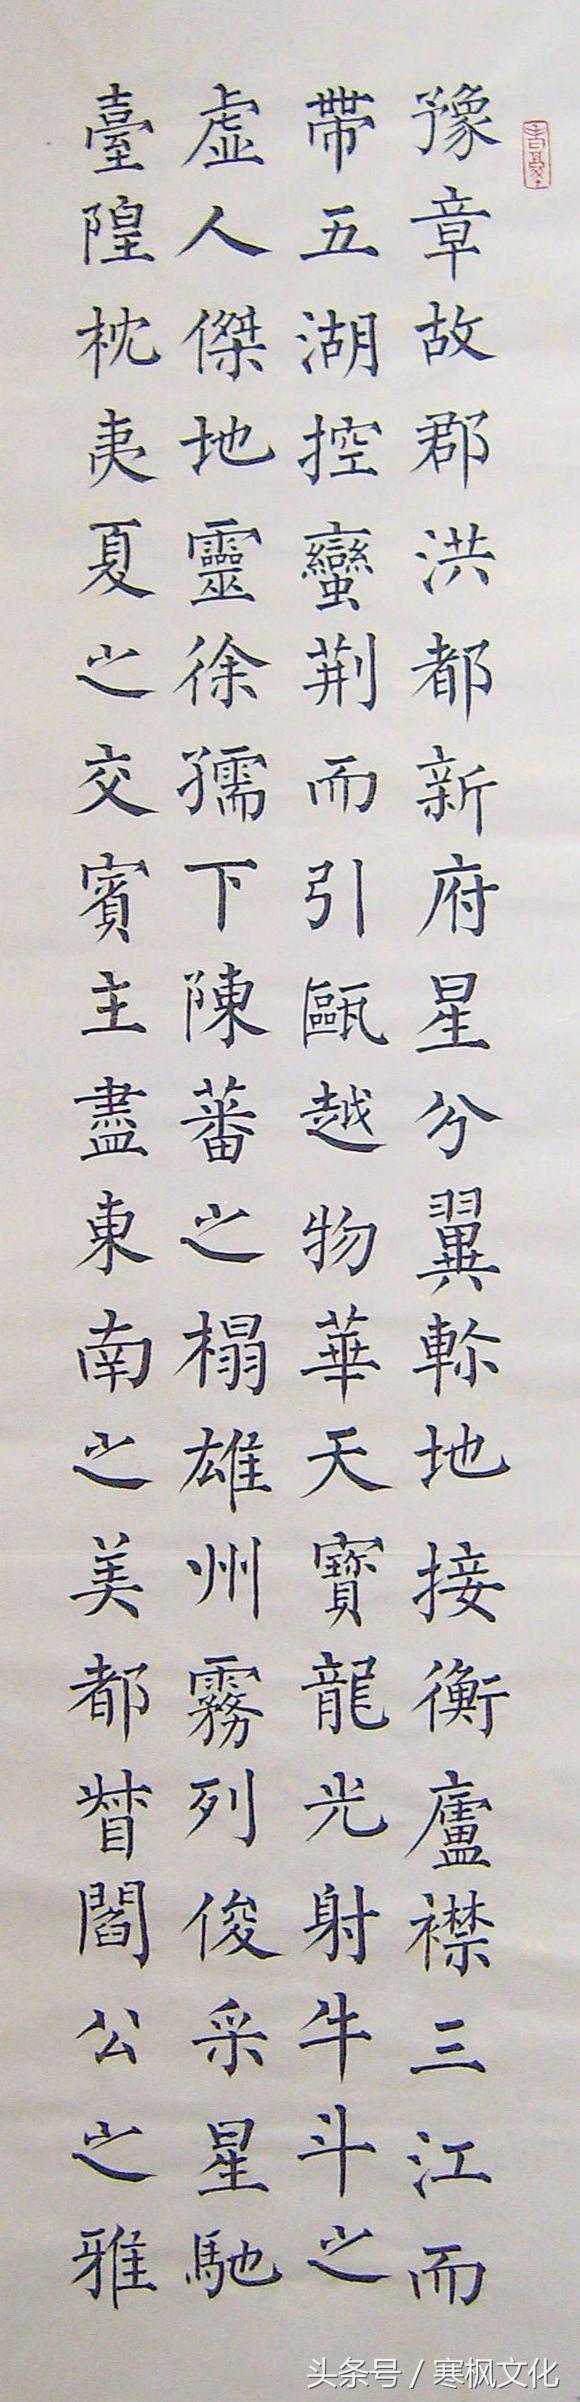 豫章故郡洪都新府星分翼軫地接衡廬襟三江而
帶五湖控蠻荆而引甌越物華天寶龍光射牛斗之
虛人傑地靈徐孺下陳蕃之榻雄州霧列俊采星馳
臺隍枕夷夏之交賓主盡東南之美都督閻公之雅
头条号 / 寒枫文化